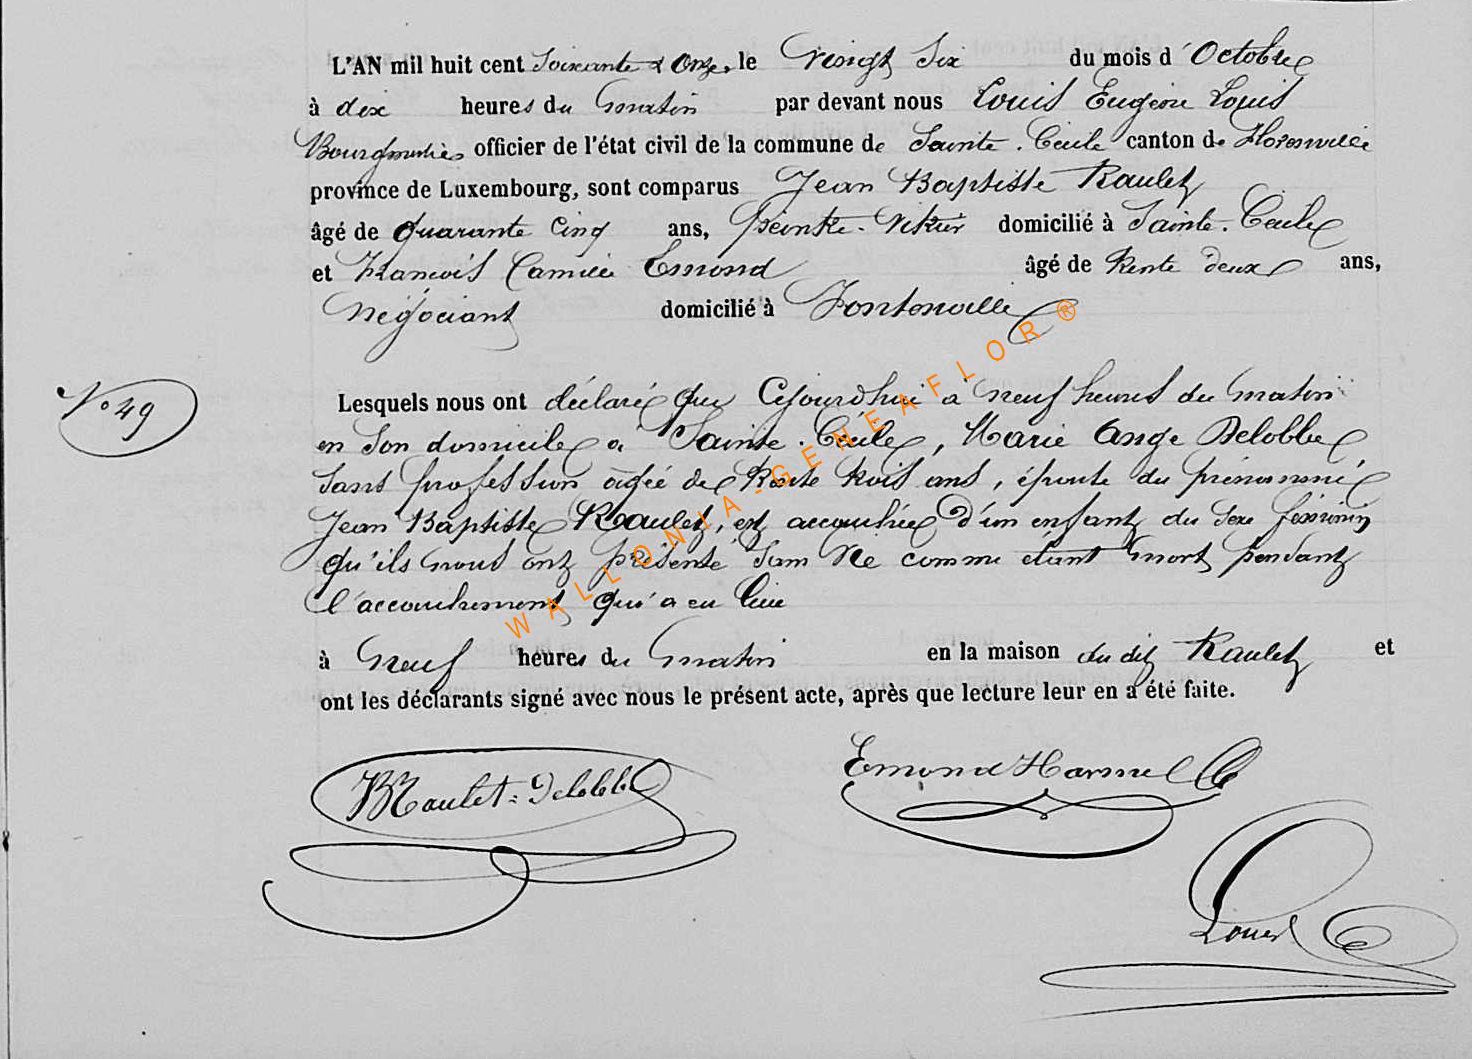 L'AN mil huit cent Soixante & Onze, le Vingt Six du mois d'Octobre
à dix heures du matin par devant nous Louis Eugène Louis
Bourgmestre officier de l'état civil de la commune de Sainte-Cécile canton de Florenville
province de Luxembourg, sont comparus Jean Baptiste Raulet
âgé de quarante cinq ans, Peintre-Vitrier domicilié à Sainte-Cécile
et François Camille Emond âgé de trente deux ans,
Négociant domicilié à Fontenoille
N° 49
Lesquels nous ont déclaré que Cejourd'hui à neuf heures du matin
en son domicile à Sainte-Cécile, Marie Ange Delobbe
sans profession âgée de trente trois ans, épouse du prénommé
Jean Baptiste Raulet, est accouchée d'un enfant du sexe féminin
qu'ils nous ont présenté sans vie comme étant mort pendant
l'accouchement qui a eu lieu
à neuf heures du matin en la maison du dit Raulet et
ont les déclarants signé avec nous le présent acte, après que lecture leur en a été faite.
Raulet-Delobbe
Emond Harmel
Louis
WALLONIA-GENEAFLOR®